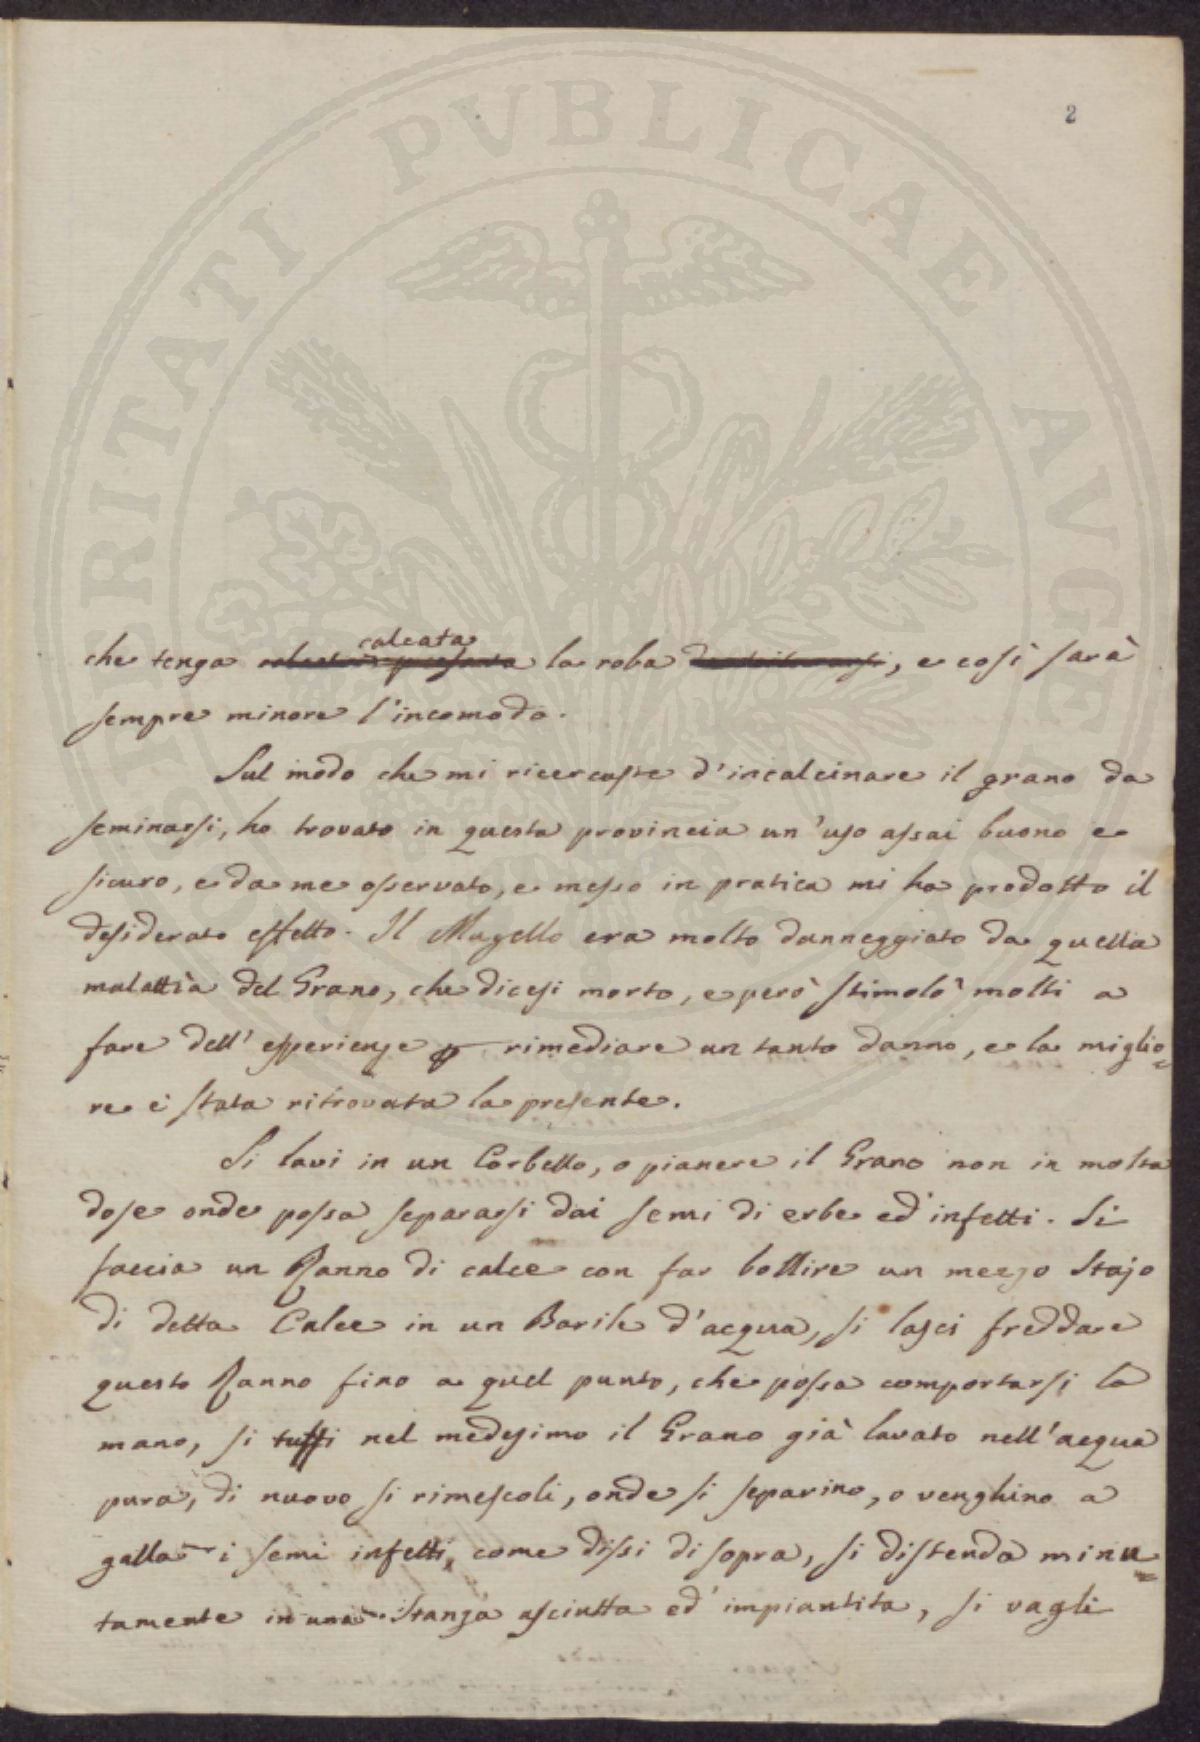 2
PROSPERITATI PUBLICAE AUGENDAE
calcata
che tenga la roba, e così sarà
sempre minore l'incomodo.
Sul modo che mi ricercaste d'incalcinare il grano da
seminarsi, ho trovato in questa provincia un'uso assai buono e
sicuro, e da me osservato, e messo in pratica mi ha prodotto il
desiderato effetto. Il Mugello era molto danneggiato da quella
malattia del Grano, che dicesi morto, e però stimolò molti a
fare dell'esperienze p rimediare un tanto danno, e la miglio=
re è stata ritrovata la presente.
Si lavi in un Corbello, o pianere il Grano non in molta
dose onde possa separarsi dai semi di erbe ed infetti. Si
faccia un Ranno di calce con far bollire un mezzo Stajo
di detta Calce in un Barile d'acqua, si lasci freddare
questo Ranno fino a quel punto, che possa comportarsi la
mano, si tuffi nel medesimo il Grano già lavato nell'acqua
pura, di nuovo si rimescoli, onde si separino, o venghino a
galla i semi infetti, come dissi di sopra, si distenda minu=
tamente in una Stanza asciutta ed' impiantita, si vagli